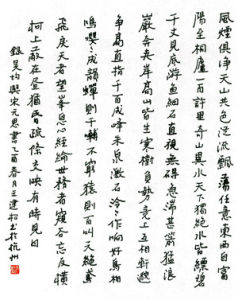 風煙俱淨天山共色從流飄蕩任意東西自富
陽至桐廬一百許里奇山異水天下獨絕水皆縹碧
千丈見底游魚細石直視無礙急湍甚箭猛浪
若奔夾岸高山皆生寒樹負勢競上互相軒邈
爭高直指千百成峰泉水激石泠泠作響好鳥相
鳴嚶嚶成韻蟬則千轉不窮猿則百叫无絕鳶
飛戾天者望峰息心經綸世務者窺谷忘反橫
柯上蔽在晝猶昏疏條交映有時見日
錄吴均與宋元思書乙酉春月王建松書於杭州